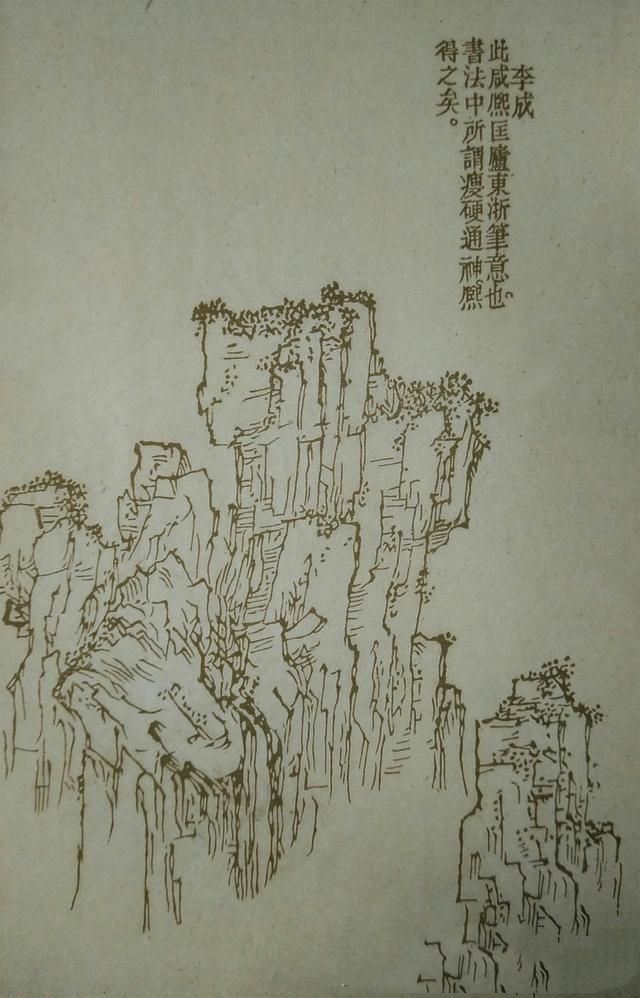 李成
此咸熙匡廬東浙筆意也。
書法中所謂瘦硬通神。熙
得之矣。